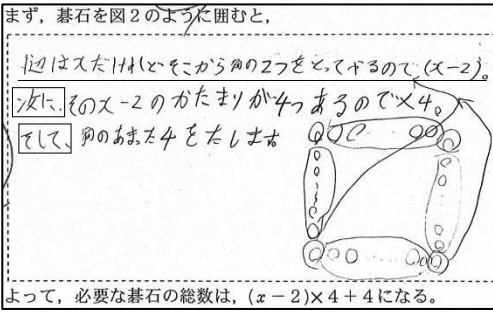 まず，碁石を図２のように囲むと，
1辺はxだけれどそこから角の2つをとってやるので(x-2)。
次に、そのx-2のかたまりが4つあるので×4。
そして、角のあまった4をたします
よって，必要な碁石の総数は，(x－2)×4＋4になる。